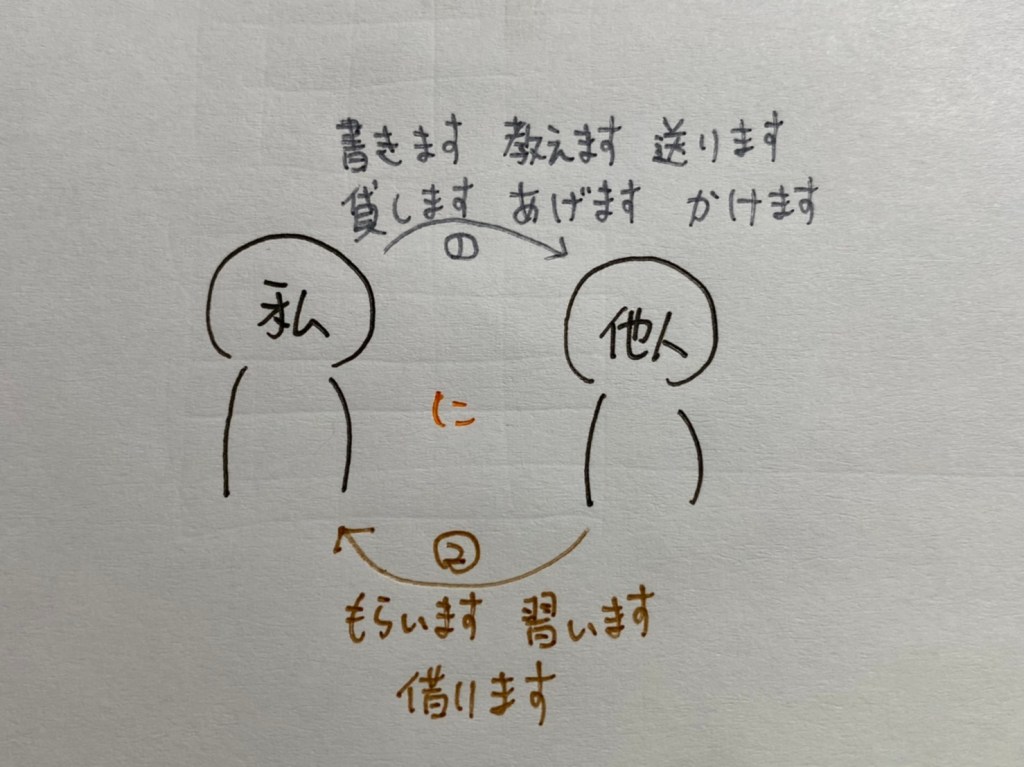 書きます 教えます 送ります
貸します あげます かけます
①
私 他人
に
②
もらいます 習います
借ります